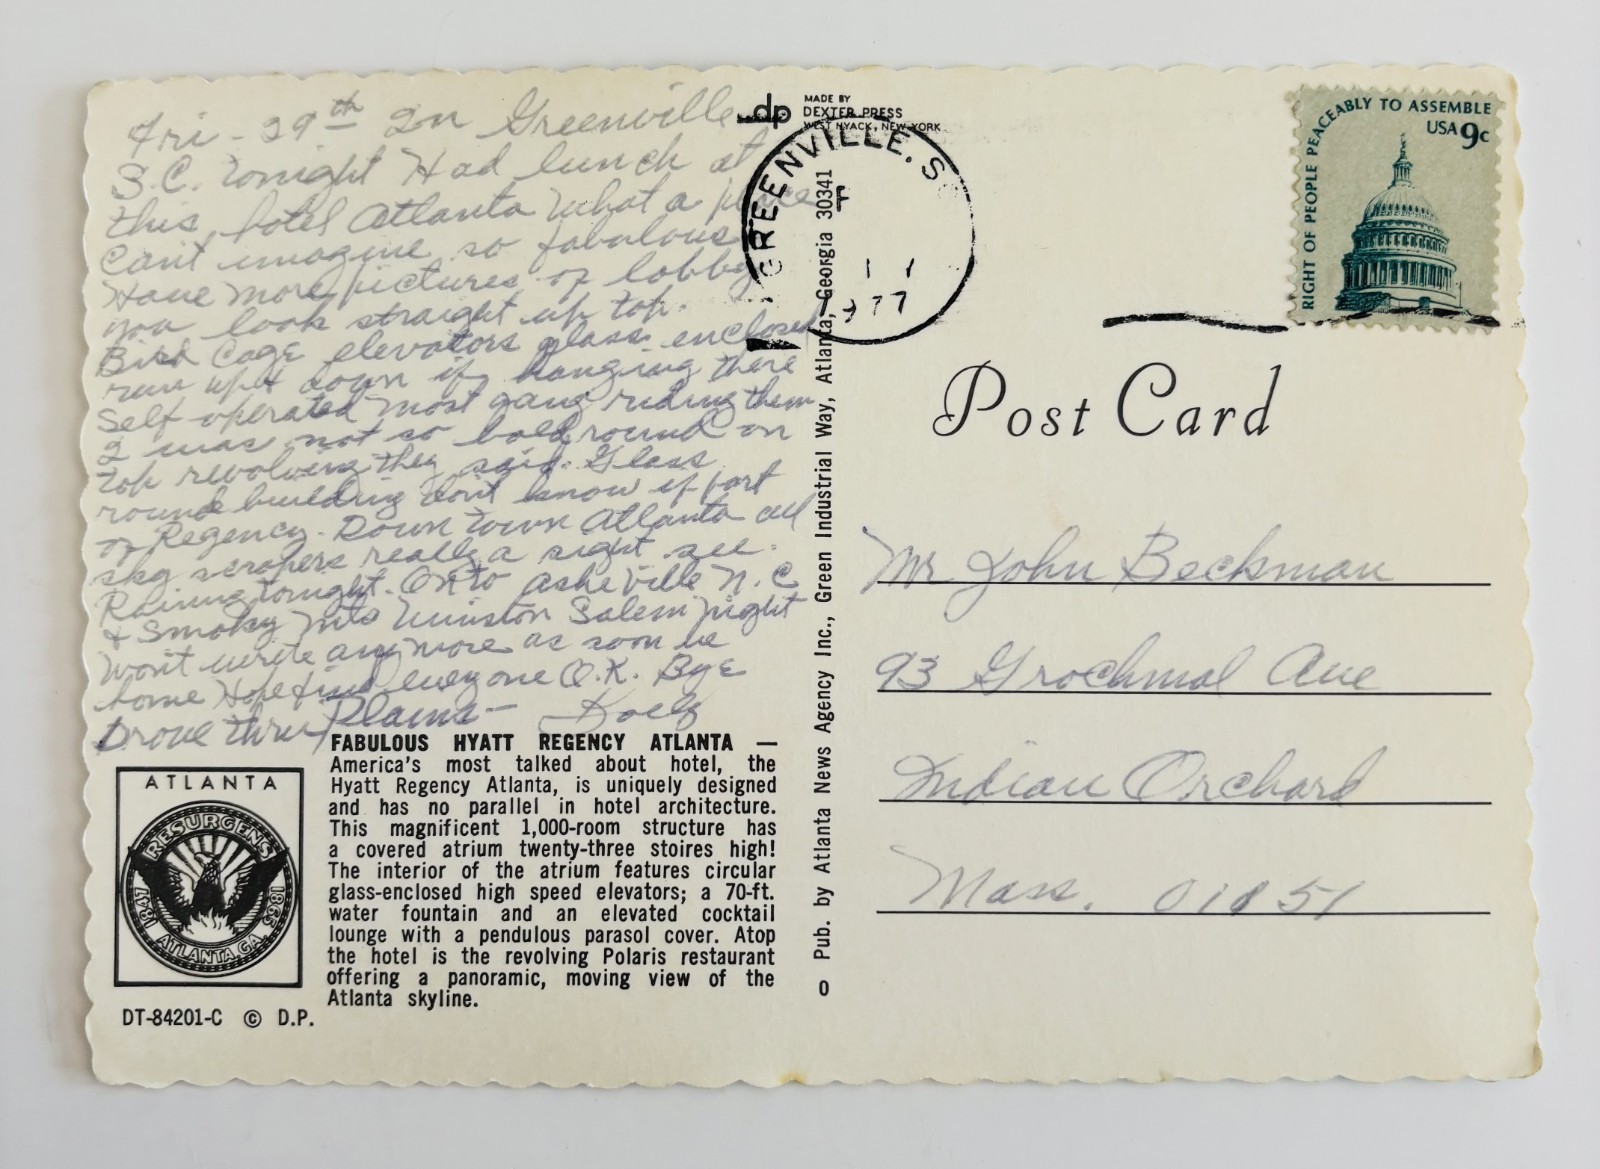 Fri - 29th In Greenville
S.C. tonight Had lunch at
this hotel Atlanta What a place
Cant imagine so fabulous
Have more pictures of lobby
you look straight up top.
Bird Cage elevators glass enclosed
run up & down if hanging there
Self operated most gang riding them
I was not so bold round on
top revolving they said. Glass
round building don't know if part
of Regency. Down town Atlanta all
sky scrapers really a sight see.
Raining tonight. On to Asheville N.C
& Smoky Mts Winston Salem night
Won't write any more as soon be
home Hope find everyone O.K. Bye
Drove thru Plains -
FABULOUS HYATT REGENCY ATLANTA —
America's most talked about hotel, the
Hyatt Regency Atlanta, is uniquely designed
and has no parallel in hotel architecture.
This magnificent 1,000-room structure has
a covered atrium twenty-three stoires high!
The interior of the atrium features circular
glass-enclosed high speed elevators; a 70-ft.
water fountain and an elevated cocktail
lounge with a pendulous parasol cover. Atop
the hotel is the revolving Polaris restaurant
offering a panoramic, moving view of the
Atlanta skyline.
ATLANTA
RESURGENS
1847 1865
ATLANTA, GA.
DT-84201-C © D.P.
dp
MADE BY
DEXTER PRESS
WEST NYACK, NEW YORK
Pub. by Atlanta News Agency Inc., Green Industrial Way, Atlanta, Georgia 30341
0
GREENVILLE, S
1977
RIGHT OF PEOPLE PEACEABLY TO ASSEMBLE
USA 9c
Post Card
Mr John Beckman
93 Grochmal Ave
Indian Orchard
Mass. 01151